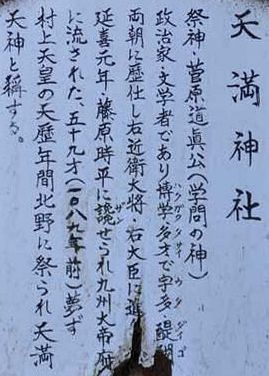 天満神社
祭神・菅原道眞公(学問の神)
政治家・文学者であり博学多才で宇多醍醐
ハクガクタサイ ウダ ダイゴ
両朝に歴仕し右近衛大将・右大臣に進
延喜元年・藤原時平に讒せられ九州大帝
ザン
に流された、五十九才(一〇八九年前)夢ず
村上天皇の天歴年間北野に祭られ天満
天神と稱する。